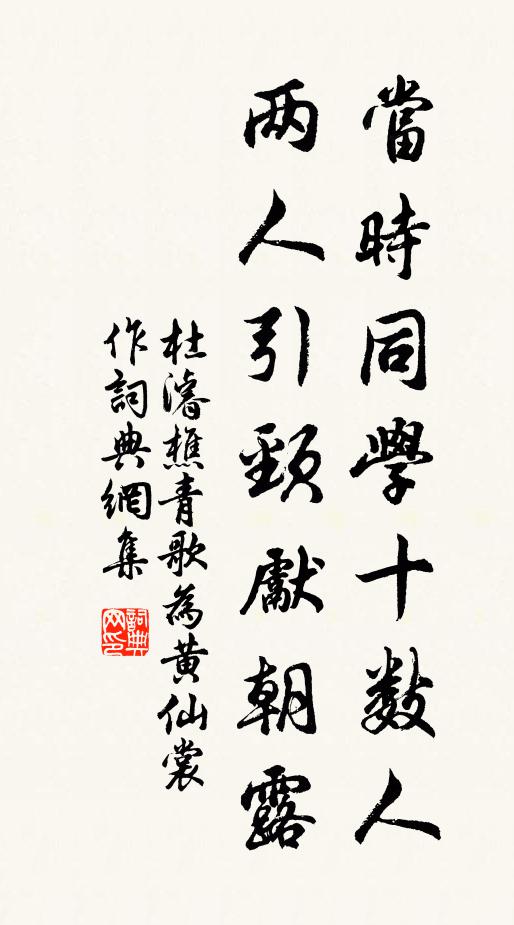 當時同學十数人
两人引頸獻朝露
杜濬樵青歌為黄仙裳
作詞典網集
詞典网印